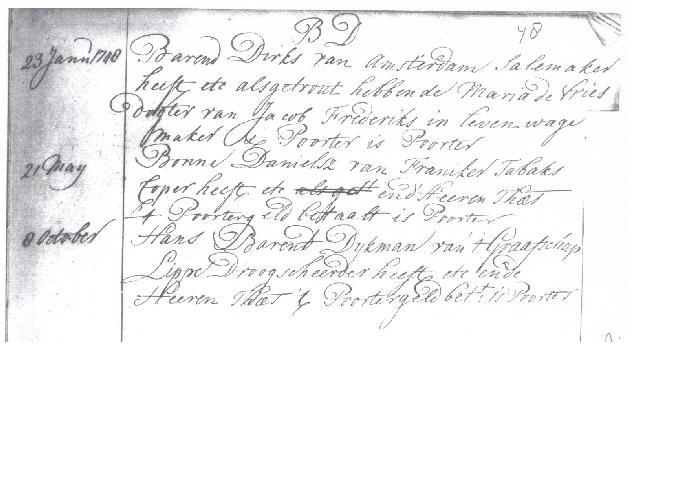 BD
48
23 Janu 1748 Barend Dirks van Amsterdam Salemaker
heeft etc als getrout hebbende Maria de Vries
dogter van Jacob Frederiks in leven wage
maker & Poorter is Poorter
21 May Bonne Danielsz van Franiker Tabaks
Coper heeft etc als get ende Heeren Thes
't Poortergeld bettaalt is Poorter
8 October Hans Barent Dykman van 't Graafschap
Lippe Droogscheerder heeft etc ende
Heeren Thes 't Poortergeld bet.t is Poorter